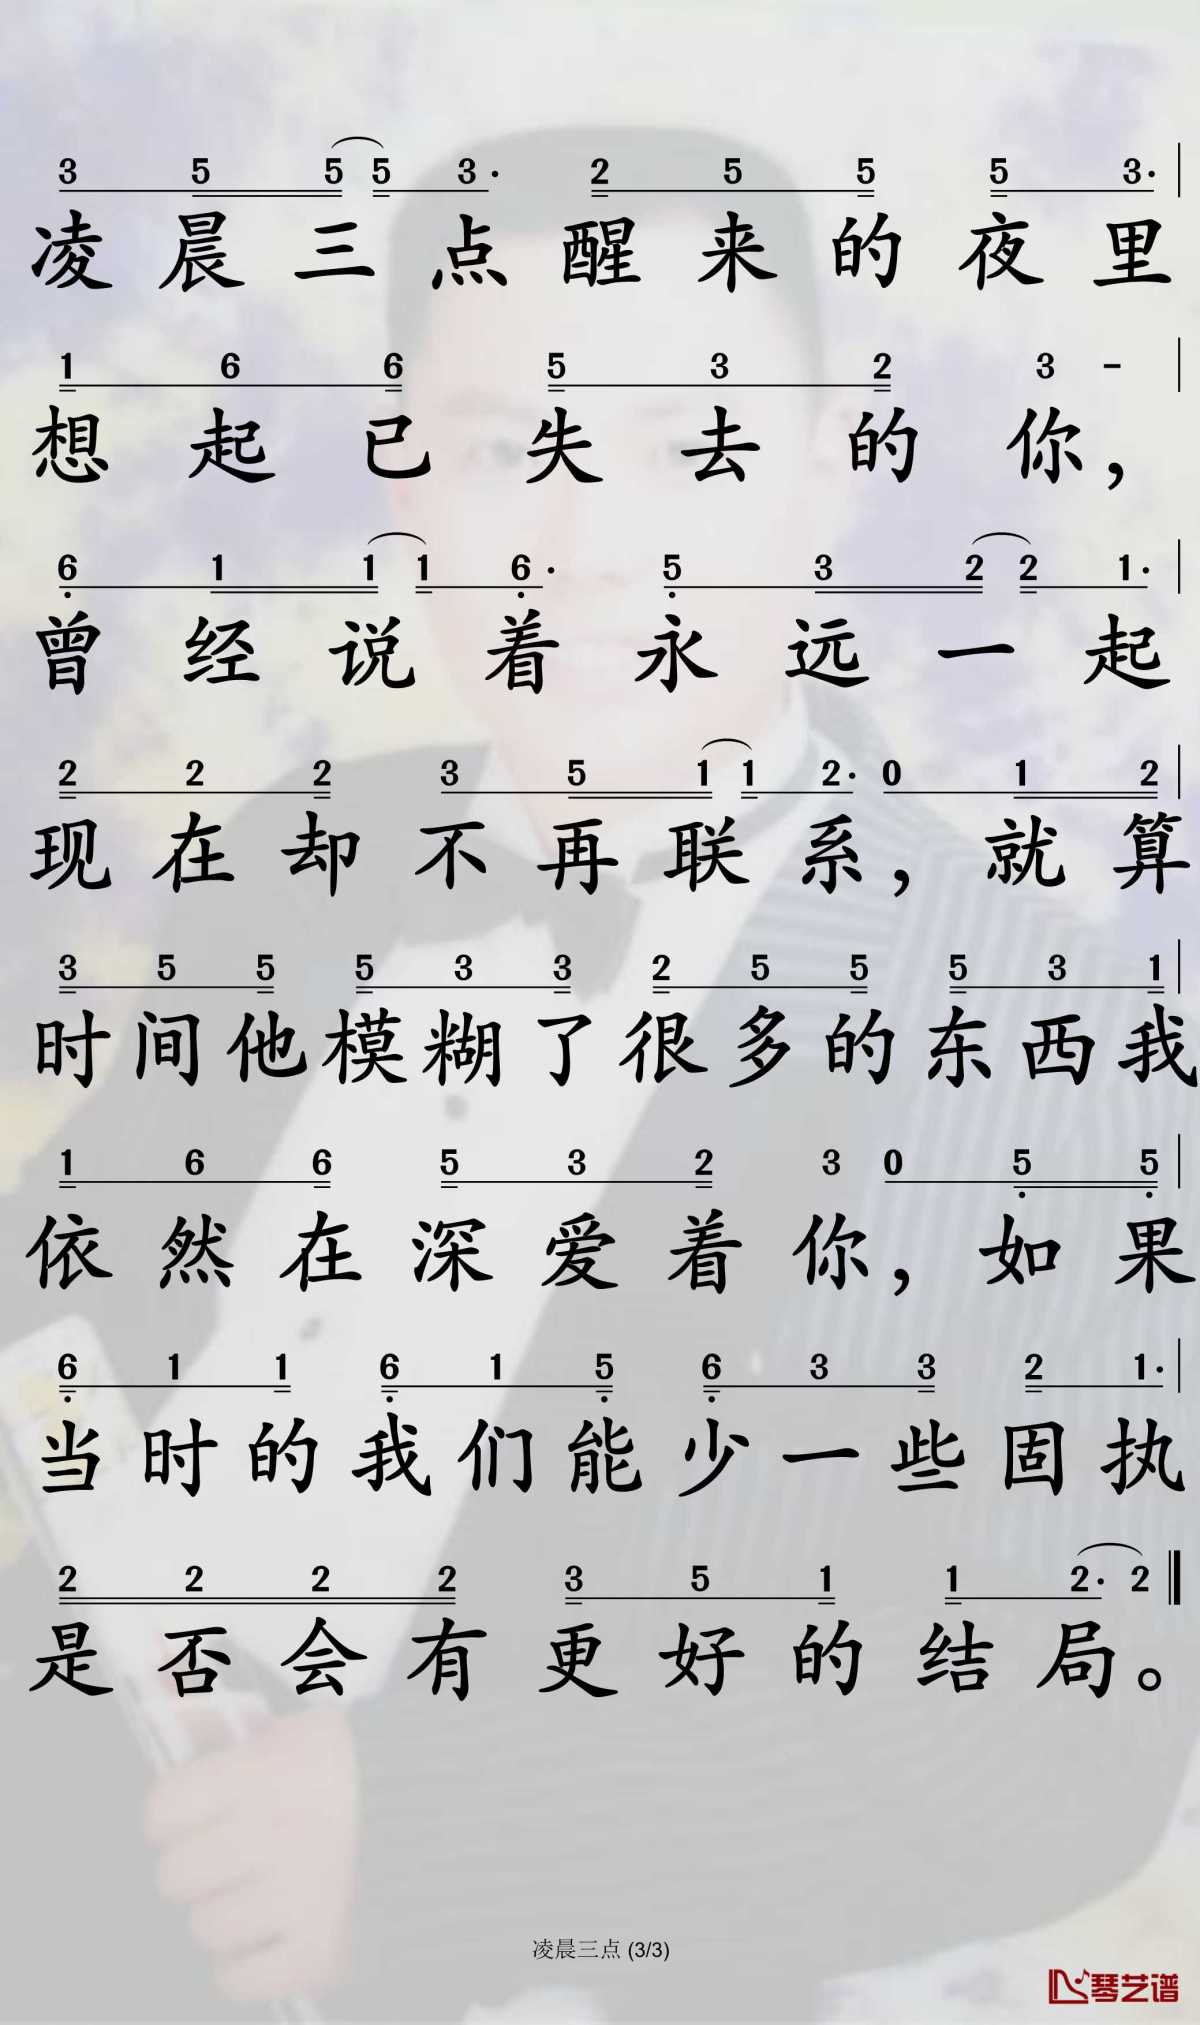 3 5 5 5 3. 2 5 5 5 3.
凌晨三点醒来的夜里
1 6 6 5 3 2 3 -
想起已失去的你，
6 1 1 1 6. 5 3 2 2 1.
曾经说着永远一起
2 2 2 3 5 1 1 2. 0 1 2
现在却不再联系，就算
3 5 5 5 3 3 2 5 5 5 3 1
时间他模糊了很多的东西我
1 6 6 5 3 2 3 0 5 5
依然在深爱着你，如果
6 1 1 6 1 5 6 3 3 2 1.
当时的我们能少一些固执
2 2 2 2 3 5 1 1 2. 2
是否会有更好的结局。
凌晨三点 (3/3)
琴艺谱